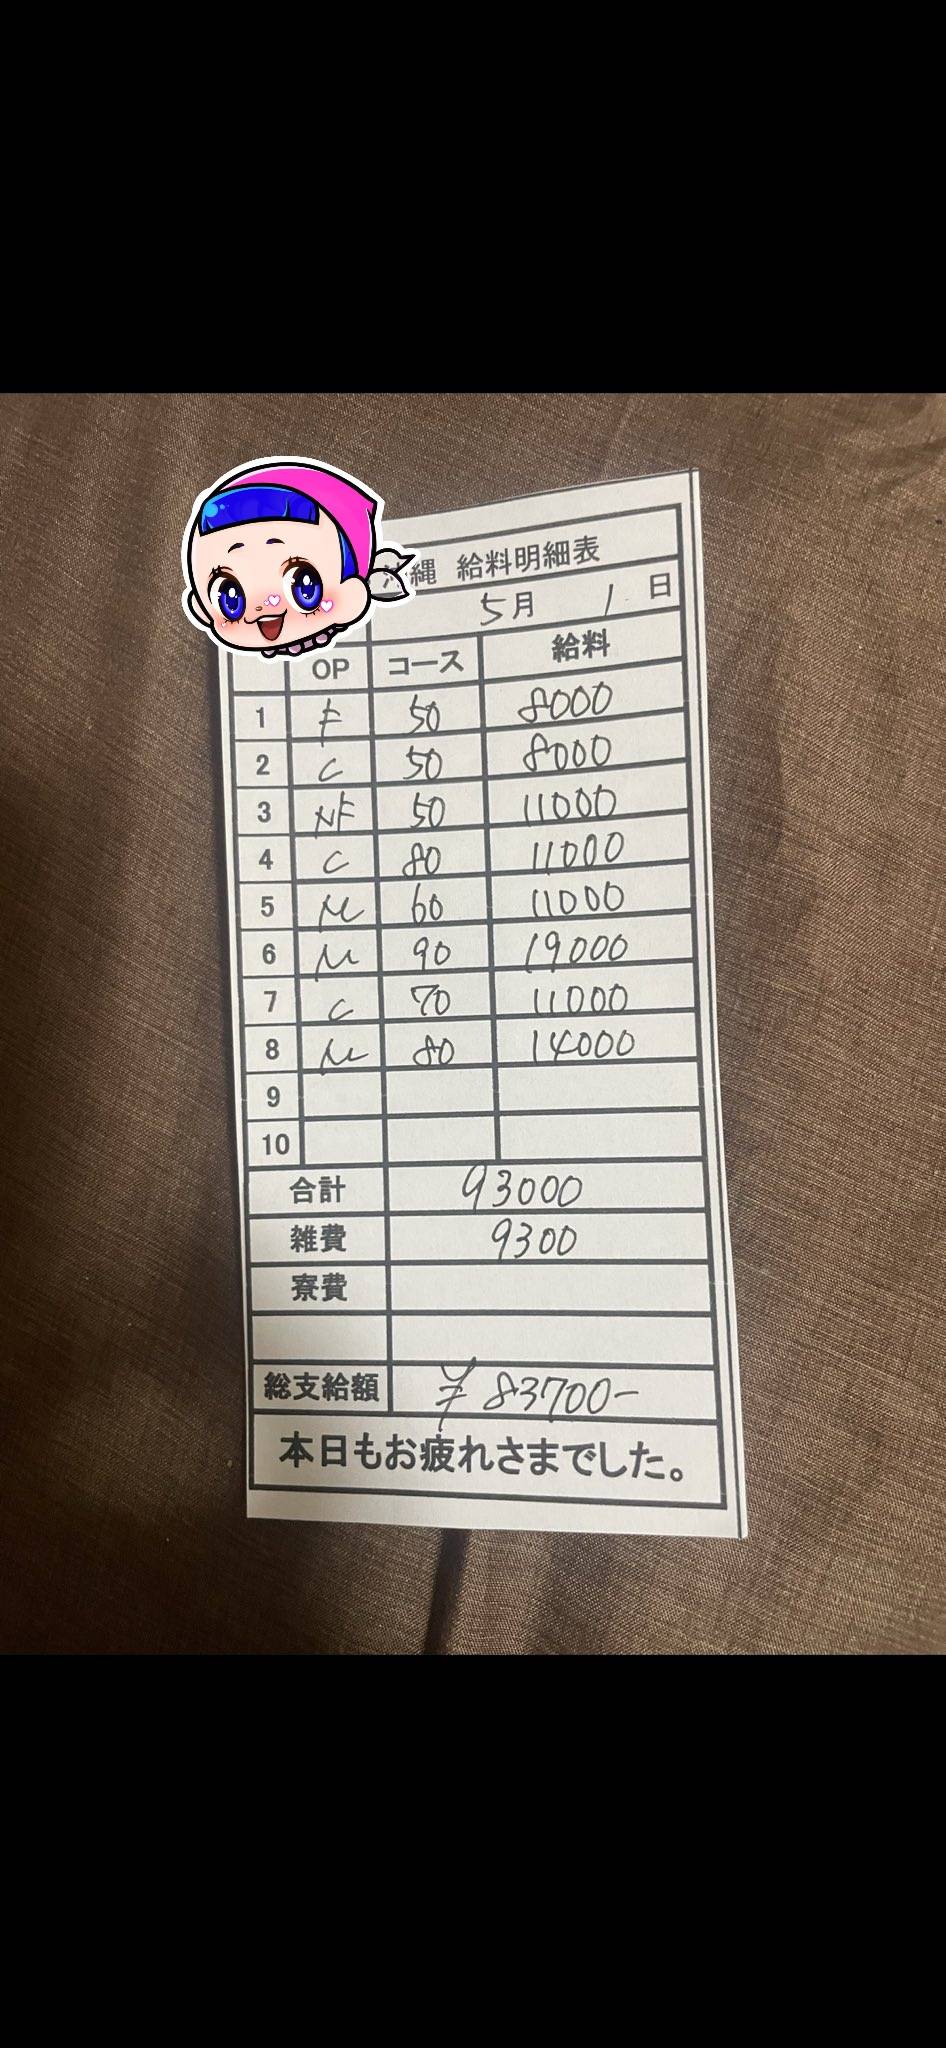 縄 給料明細表
5月 1 日
OP コース 給料
1 F 50 8000
2 C 50 8000
3 NF 50 11000
4 C 80 11000
5 M 60 11000
6 M 90 19000
7 C 70 11000
8 M 80 14000
9
10
合計 93000
雑費 9300
寮費
総支給額 ¥ 83700-
本日もお疲れさまでした。